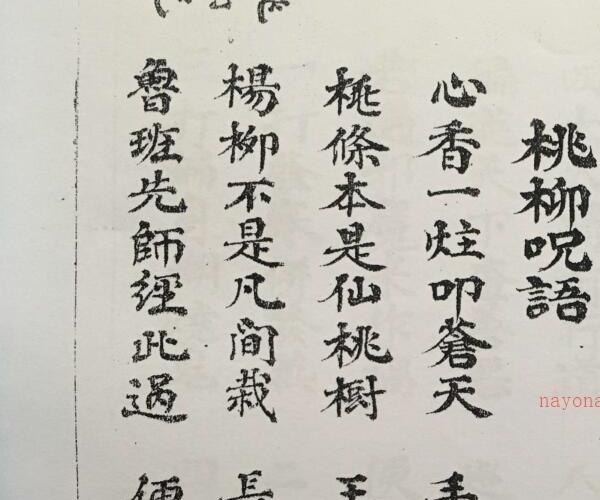 桃柳咒語
心香一炷叩蒼天
桃條本是仙桃樹
楊柳不是凡間栽
魯班先師經此過
nayona